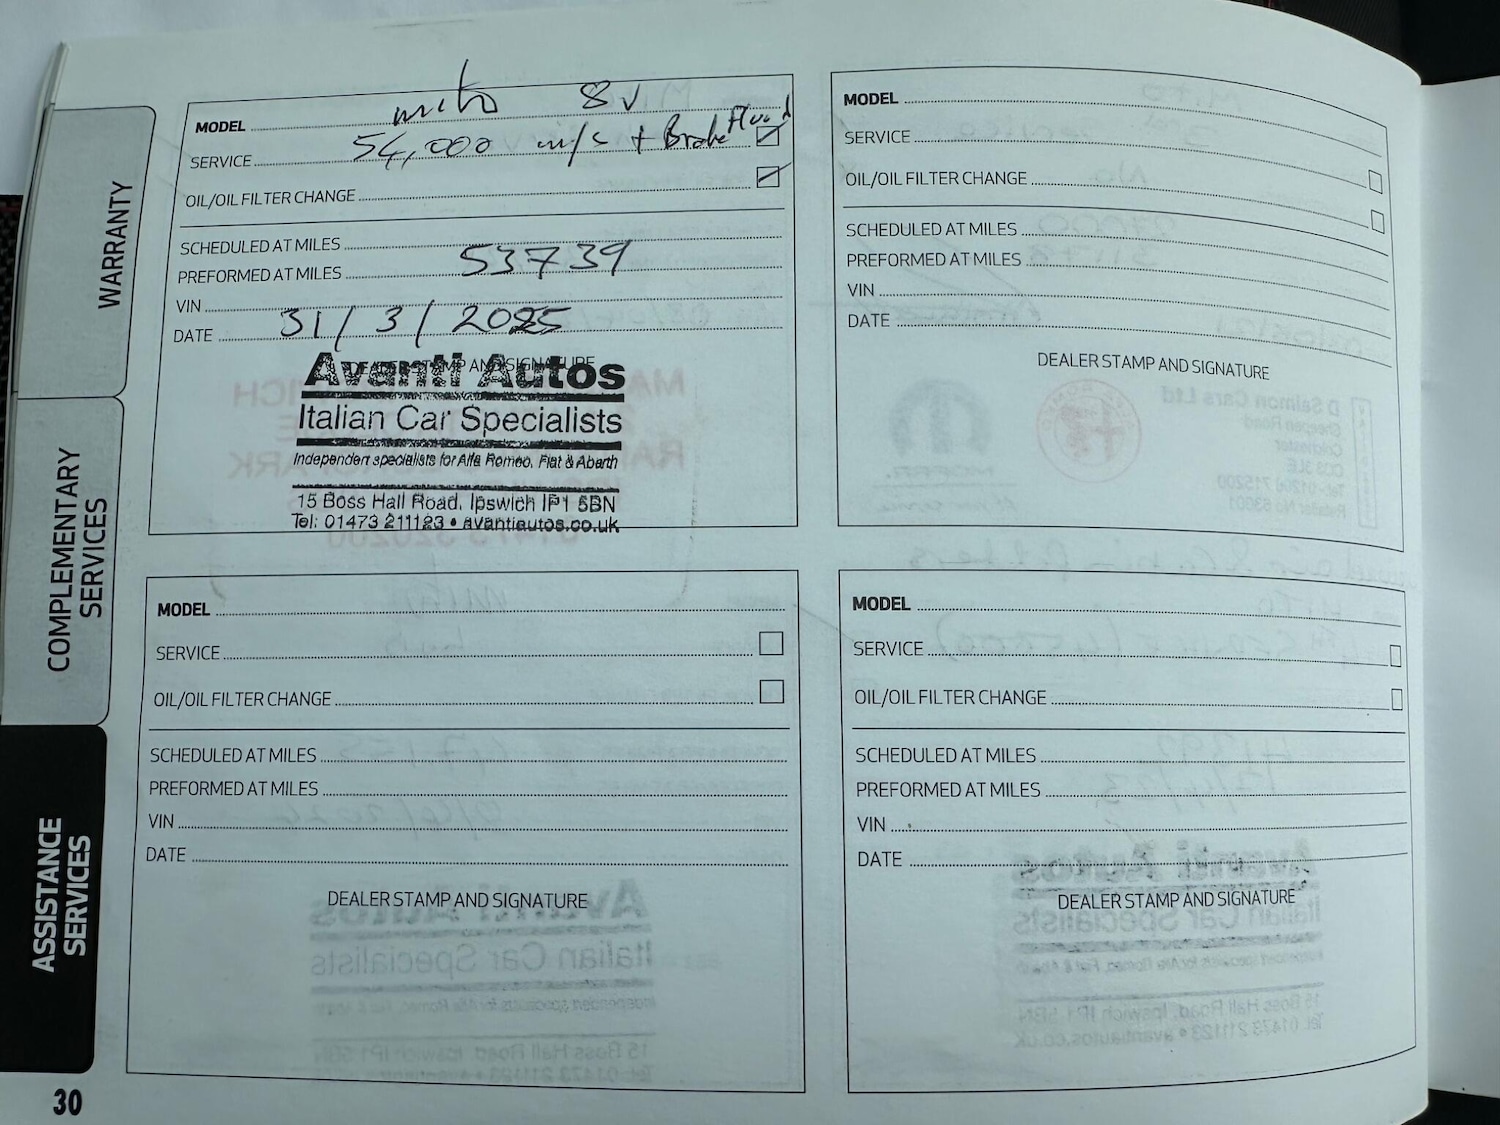 WARRANTY
COMPLEMENTARY
SERVICES
ASSISTANCE
SERVICES
MODEL mito 8v
SERVICE 54,000 m/s + Brake Fluid
OIL/OIL FILTER CHANGE
SCHEDULED AT MILES
PREFORMED AT MILES 53739
VIN
DATE 31/3/2025
DEALER STAMP AND SIGNATURE
Avanti Autos
Italian Car Specialists
Independent specialists for Alfa Romeo, Fiat & Abarth
15 Boss Hall Road, Ipswich IP1 5BN
Tel: 01473 211123 • avantiautos.co.uk
MODEL
SERVICE
OIL/OIL FILTER CHANGE
SCHEDULED AT MILES
PREFORMED AT MILES
VIN
DATE
DEALER STAMP AND SIGNATURE
MODEL
SERVICE
OIL/OIL FILTER CHANGE
SCHEDULED AT MILES
PREFORMED AT MILES
VIN
DATE
DEALER STAMP AND SIGNATURE
MODEL
SERVICE
OIL/OIL FILTER CHANGE
SCHEDULED AT MILES
PREFORMED AT MILES
VIN
DATE
DEALER STAMP AND SIGNATURE
30